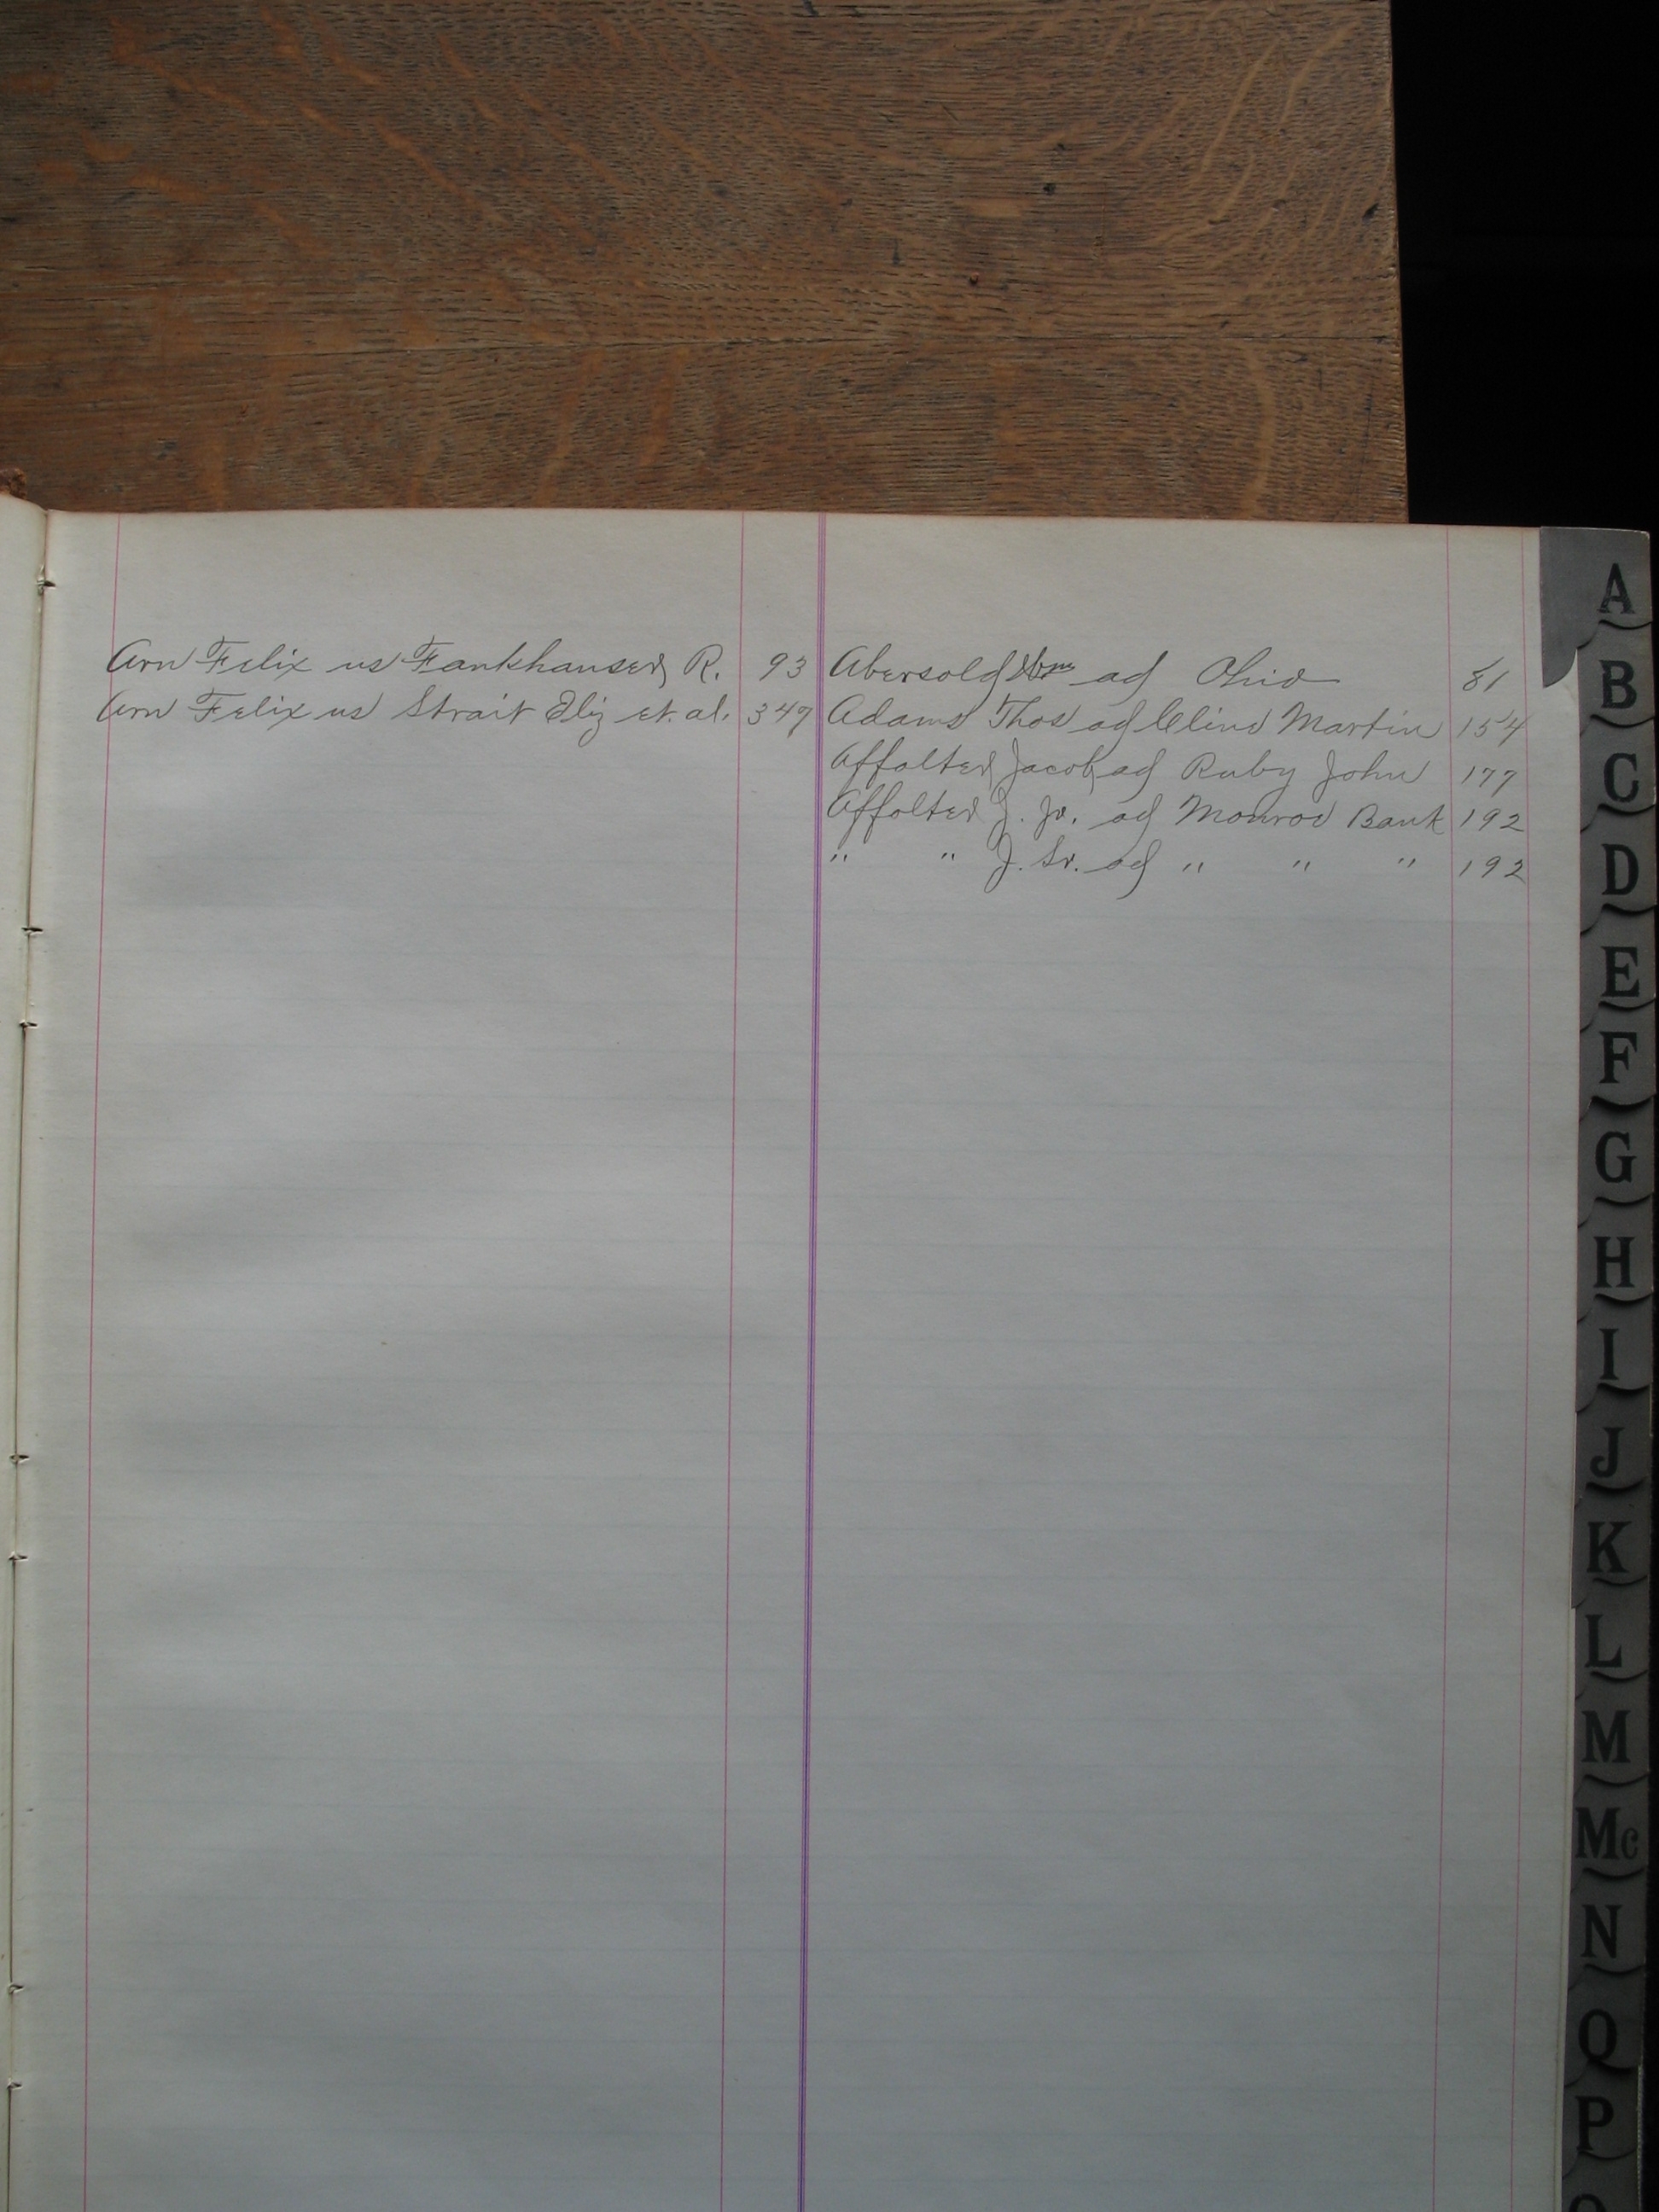 Arn Felix vs Fankhauser R. 93
Arn Felix vs Strait Eliz et. al. 347
Abersold Wm ad Ohio 81
Adams Thos ad Cline Martin 154
Affolter Jacob ad Ruby John 177
Affolter J. Jr. ad Monroe Bank 192
" " J. Sr. ad " " " 192
A
B
C
D
E
F
G
H
I
J
K
L
M
Mc
N
O
P